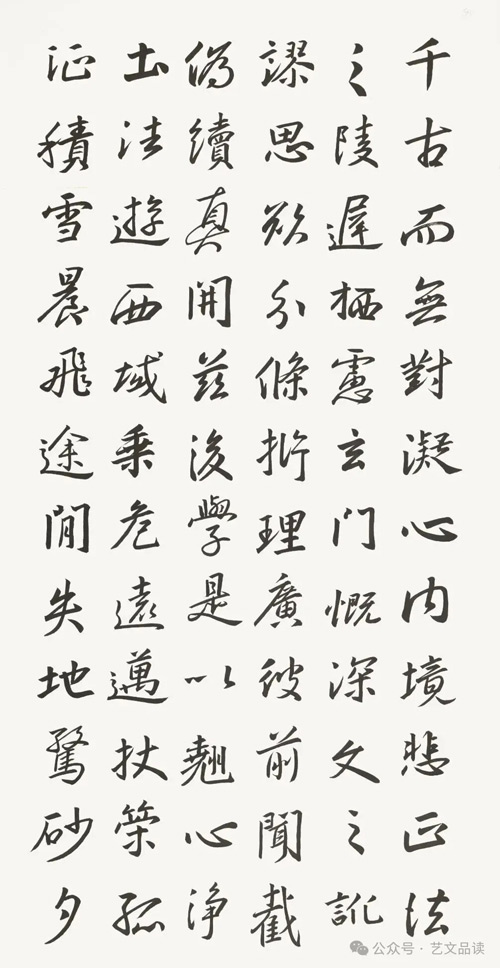 千古而無對凝心内境悲正法
之陵遲栖慮玄門慨深文之訛
謬思欲分條析理廣彼前聞截
偽續真開茲後學是以翹心淨
土法遊西域乘危遠邁杖策孤
征積雪晨飛途閒失地驚砂夕
公众号·艺文品读